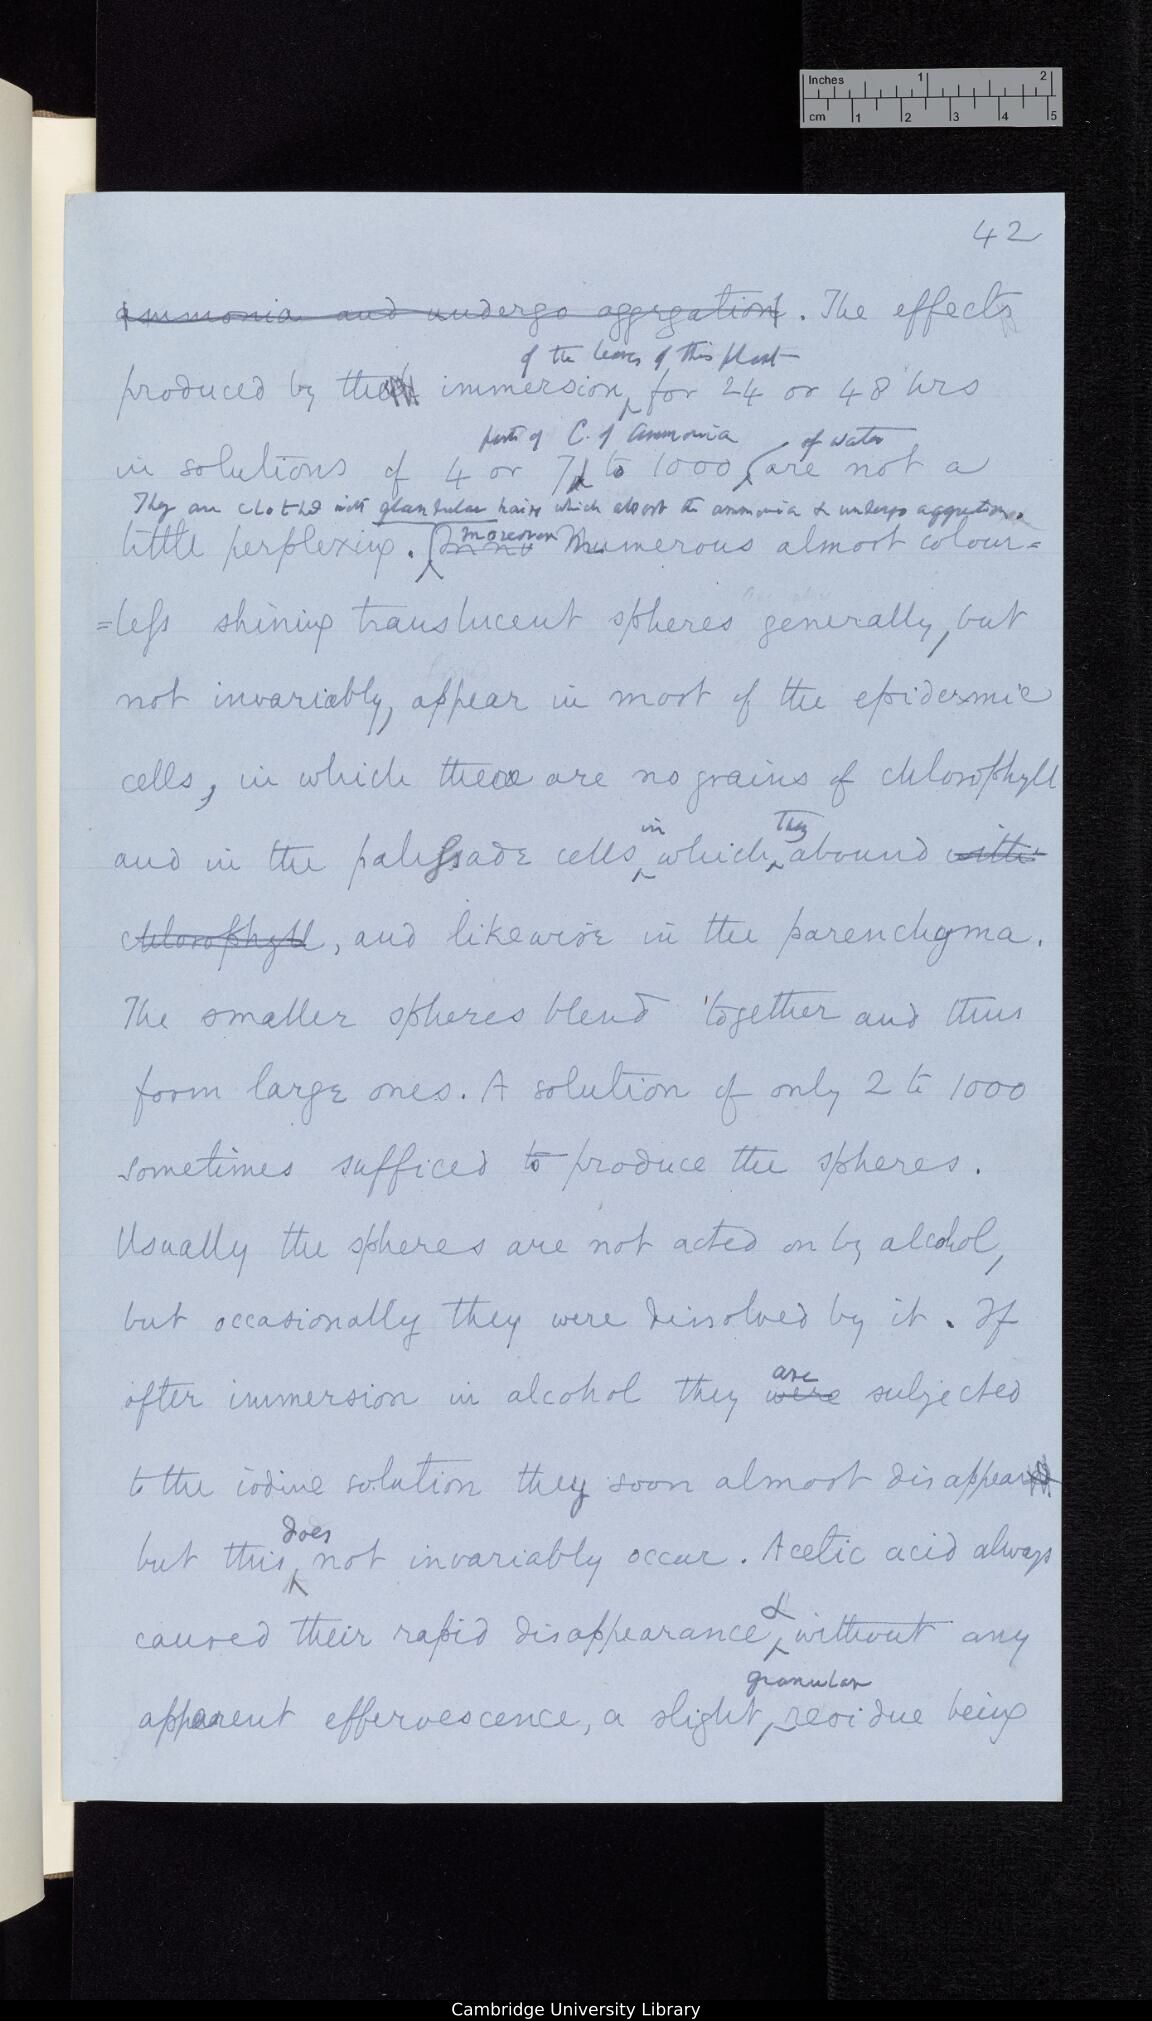 Inches 1 2
cm 1 2 3 4 5
42
ammonia and undergo aggregation. The effects
of the leaves of this plant
produced by the immersion, for 24 or 48 hrs
parts of C. of Ammonia of water
in solutions of 4 or 7 to 1000, are not a
They are clothed with glandular hairs which absorb the ammonia & undergo aggregation.
little perplexing. moreover numerous almost colour=
=less shining translucent spheres generally, but
not invariably, appear in most of the epidermic
cells, in which there are no grains of chlorophyll
in They
and in the palissade cells which abound with
chlorophyll, and likewise in the parenchyma.
The smaller spheres blend together and thus
form large ones. A solution of only 2 to 1000
sometimes sufficed to produce the spheres.
Usually the spheres are not acted on by alcohol,
but occasionally they were dissolved by it. If
are
after immersion in alcohol they were subjected
to the iodine solution they soon almost disappear
does
but this not invariably occur. Acetic acid always
&
caused their rapid disappearance, without any
granular
apparent effervescence, a slight residue being
Cambridge University Library